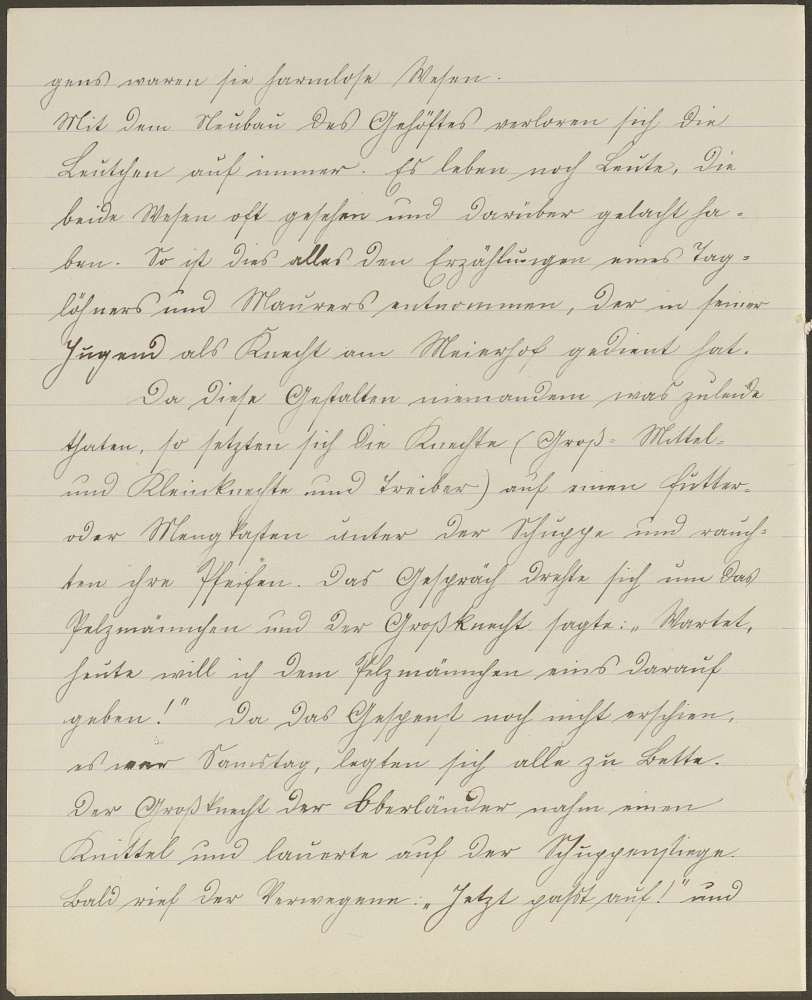 gens waren sie harmlose Wesen.
Mit dem Neubau des Gehöftes verloren sich die
Leutchen auf immer. Es leben noch Leute, die
beide Wesen oft gesehen und darüber gelacht ha-
ben. So ist dies alles den Erzählungen eines Tag-
löhners und Maurers entnommen, der in seiner
Jugend als Knecht am Meierhof gedient hat.
Da diese Gestalten niemandem was zuleide
thaten, so setzten sich die Knechte (Groß- Mittel-
und Kleinknechte und Treiber) auf einen Futter-
oder Mengkasten unter der Schuppe und rauch-
ten ihre Pfeifen. Das Gespräch drehte sich um das
Pelzmännchen und der Großknecht sagte: „Wartet,
heute will ich dem Pelzmännchen eins darauf
geben!" Da das Gespenst noch nicht erschien,
es war Samstag, legten sich alle zu Bette.
Der Großknecht der Oberländer nahm einen
Knittel und lauerte auf der Schuppenstiege.
Bald rief der Verwegene: „Jetzt paßt auf!" und